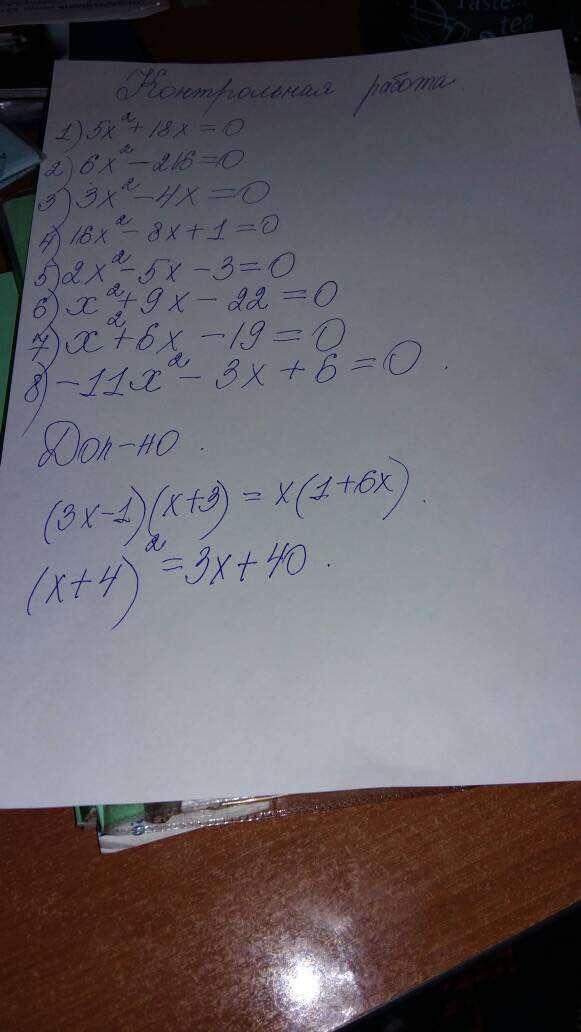 Taste...
tea
Контрольная работа
1) 5x² + 18x = 0
2) 6x² - 216 = 0
3) 3x² - 4x = 0
4) 16x² - 8x + 1 = 0
5) 2x² - 5x - 3 = 0
6) x² + 9x - 22 = 0
7) x² + 6x - 19 = 0
8) -11x² - 3x + 6 = 0.
Доп-но.
(3x-1)(x+3) = x(1+6x).
(x+4)² = 3x+40.